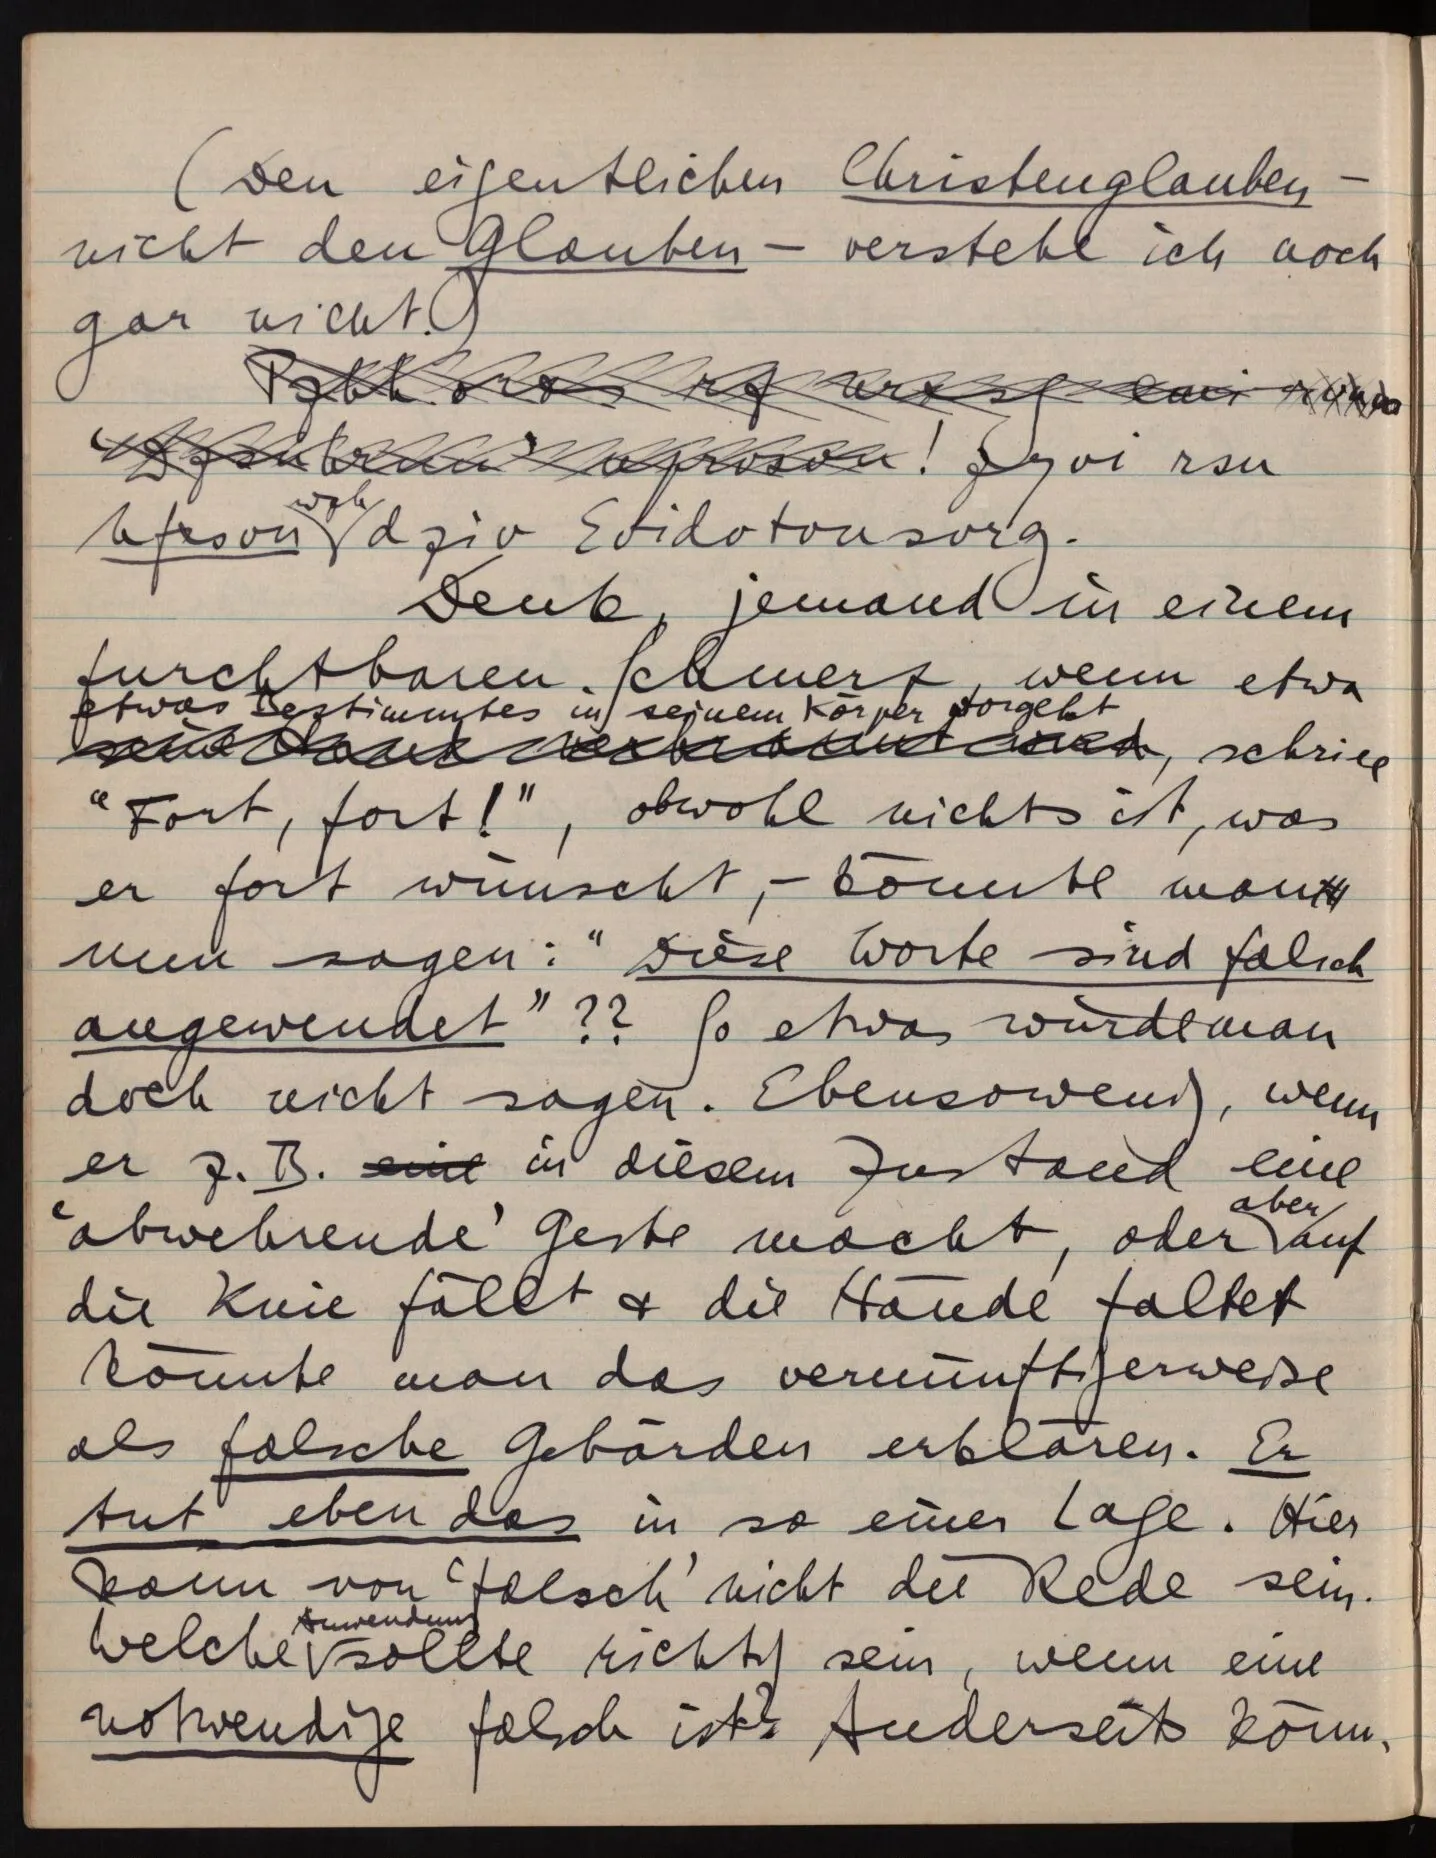 (Den eigentlichen Christenglauben –
nicht den Glauben – verstehe ich noch
gar nicht.)
! Zgvi rsn
wob
dziv Evidotonsorg.
Denk, jemand in einem
furchtbaren Schmerz, wenn etwa
etwas Bestimmtes in seinem Körper vorgeht
seine Hand verbrannt wird, schriee
“Fort, fort!”, obwohl nichts ist, was
er fort wünscht, – könnte man
nun sagen: “Diese Worte sind falsch
angewendet”?? So etwas würde man
doch nicht sagen. Ebensowenig, wenn
er z. B. eine in diesem Zustand eine
aber
‘abwehrende’ Geste macht, oder auf
die Knie fällt & die Hände faltet
könnte man das vernünftigerweise
als falsche Gebärden erklären. Er
tut eben das in so einer Lage. Hier
kann von ‘falsch’ nicht die Rede sein.
Anwendung
Welche sollte richtig sein, wenn eine
notwendige falsch ist? Anderseits könn-